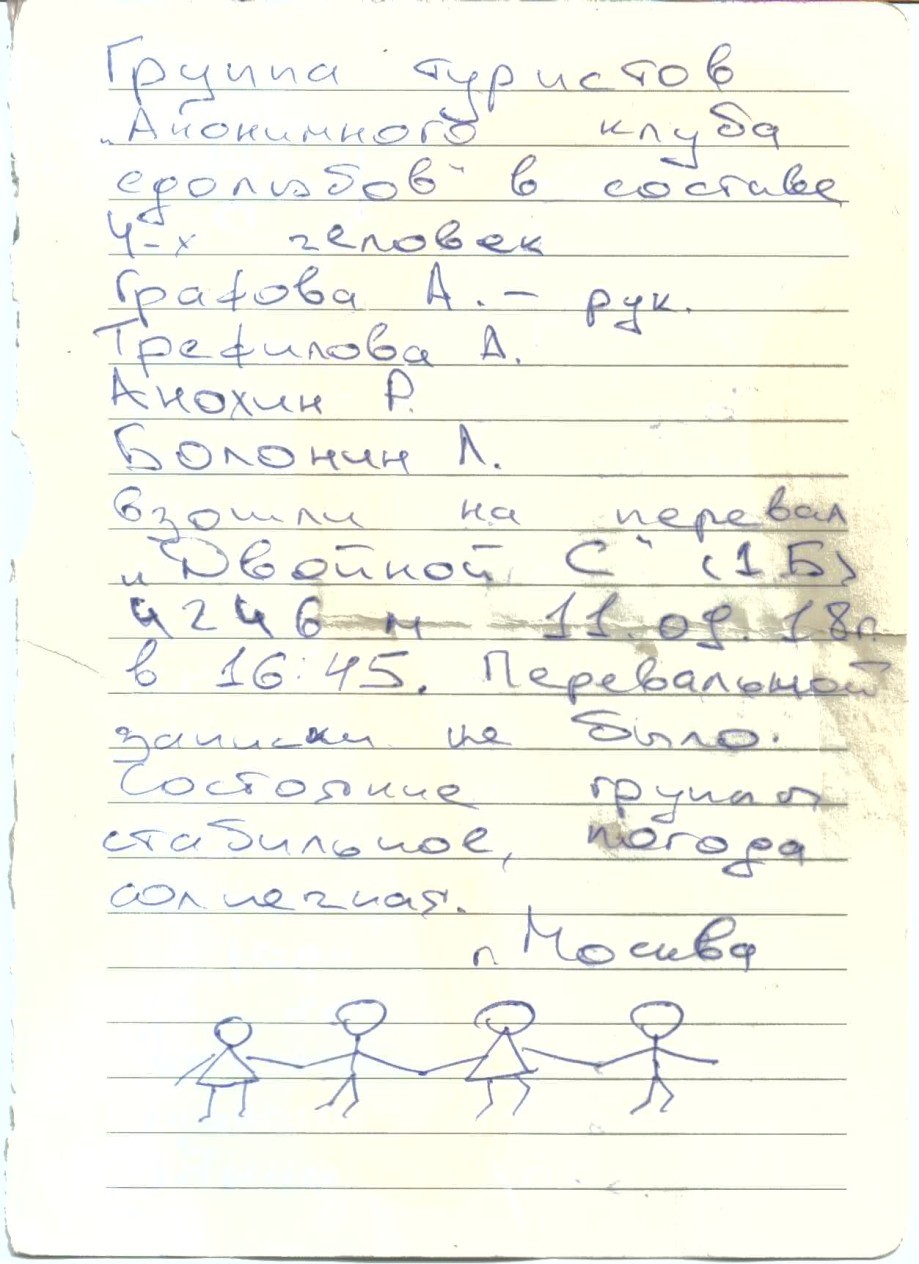 Группа туристов
„Анонимного клуба
едолюбов" в составе
4-х человек
Графова А. – рук.
Трефилова А.
Анохин Р.
Болонин Л.
взошли на перевал
„Двойной С" (1Б)
4246 м 11.08.18г.
в 16:45. Перевальной
записки не было.
Состояние группы
стабильное, погода
солнечная.
г. Москва